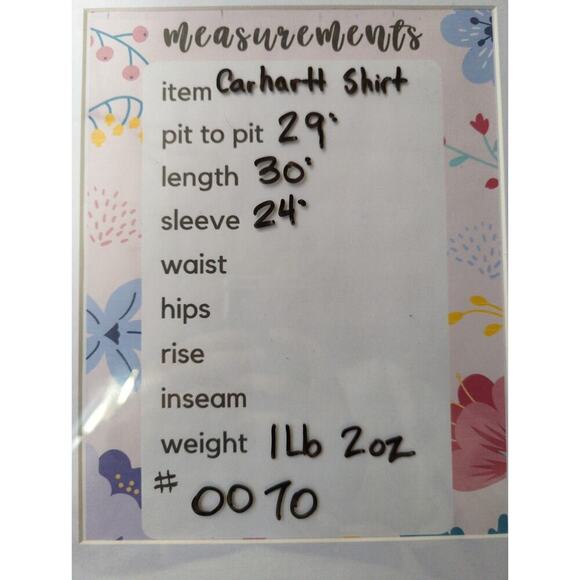 measurements
item Carhartt Shirt
pit to pit 29"
length 30"
sleeve 24"
waist
hips
rise
inseam
weight 1Lb 2oz
# 0070